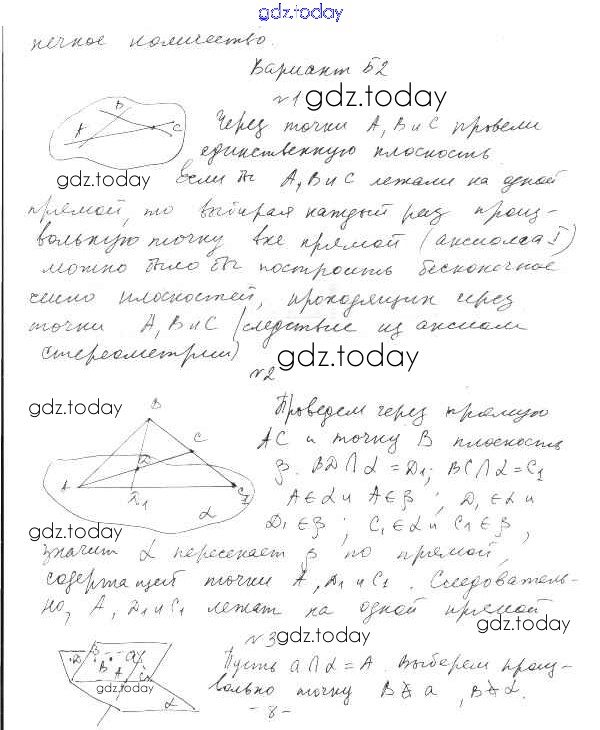 gdz.today
нечное количество.
Вариант Б2
№1 gdz.today
B A C
Через точки A, B и C провели
единственную плоскость
gdz.today Если бы A, B и C лежали на одной
прямой, то выбирая каждый раз произ-
вольную точку вне прямой (аксиома I)
можно было бы построить бесконечное
число плоскостей, проходящих через
точки A, B и C (следствие из аксиом
стереометрии)
№2 gdz.today
gdz.today
B C A D D1 C1 α
Проведем через прямую
AC и точку B плоскость
β. BD∩α = D1; BC∩α = C1
A∈α и A∈β ; D1∈α и
gdz.today D1∈β ; C1∈α и C1∈β,
значит α пересекает β по прямой,
содержащей точки A, D1 и C1. Следователь-
но, A, D1 и C1 лежат на одной прямой
gdz.today
№3 gdz.today
B A a α
gdz.today
Пусть a∩α = A. Выберем произ-
вольно точку B∉a, B∉α.
- 8 -